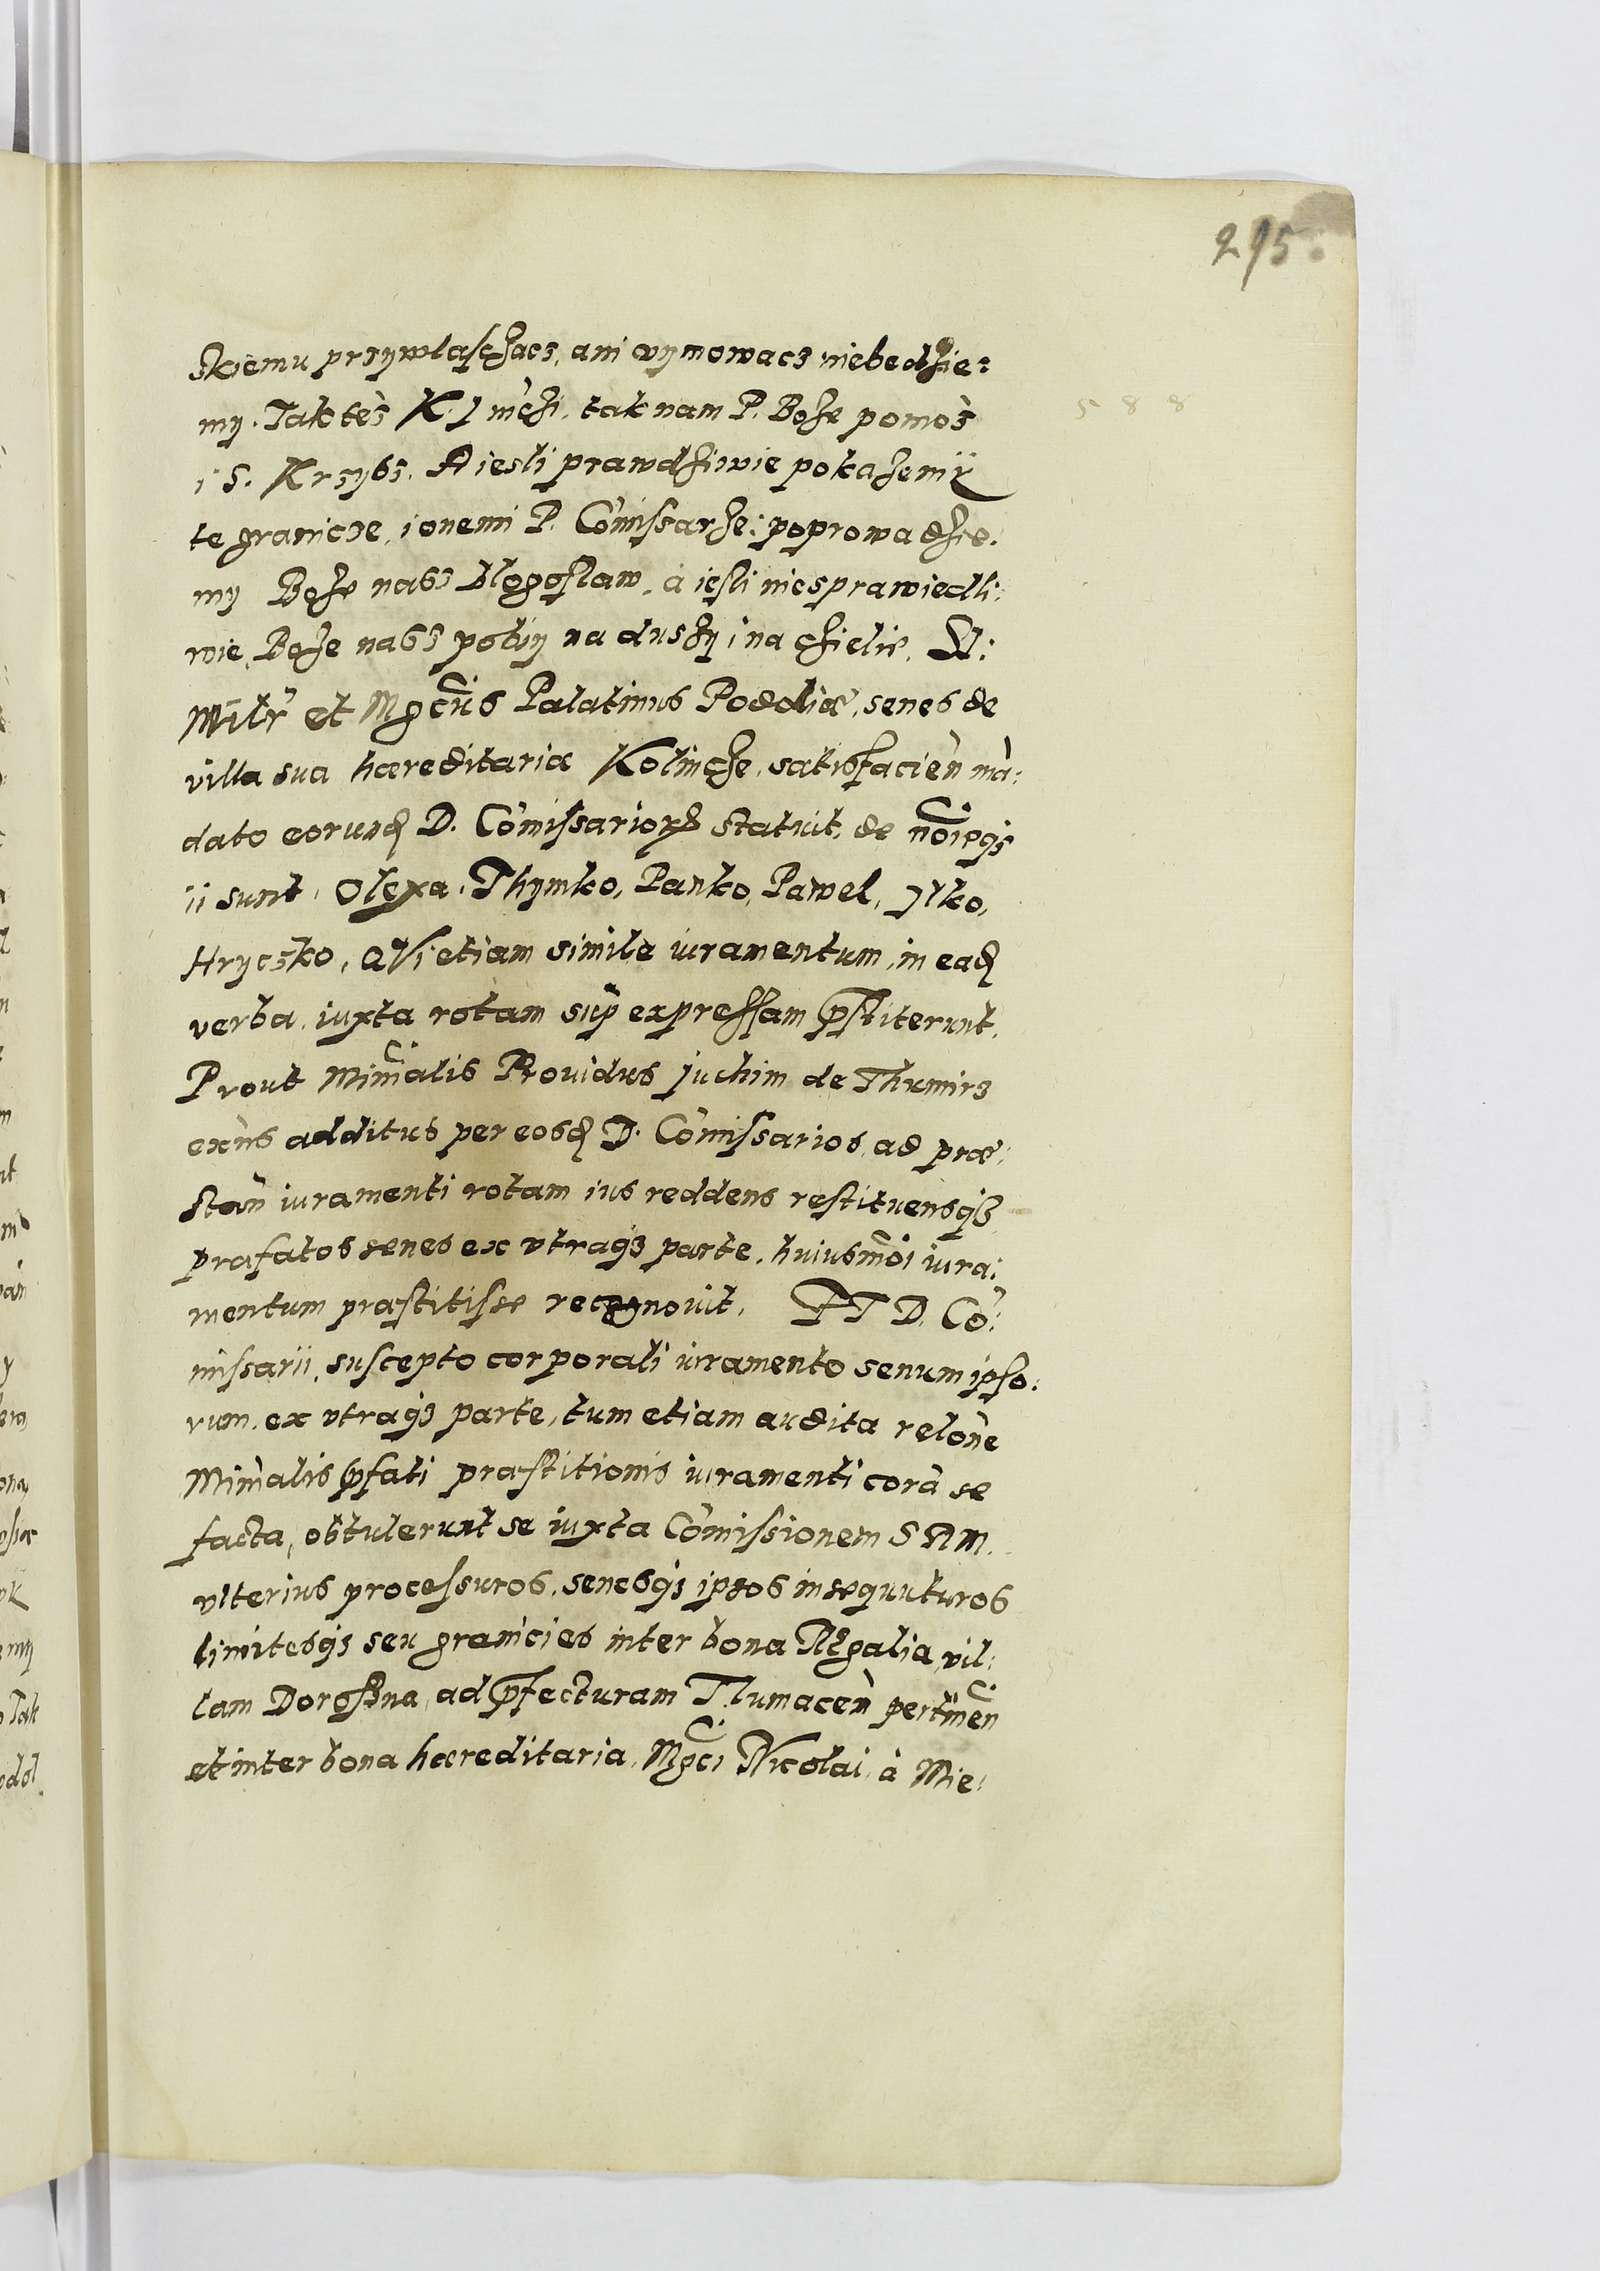 295
588
skiemu przywlaschacz, ani wymowacz niebedzie:
my. Tak tès K. J. mczi, tak nam P. Boże pomòs
i S. Krzybz. A iesli prawdziwie pokażemÿ
te granicze, i onemi P. Cōmissarze: poprowadzie:
my Boże nabz blogoslaw, à iesli niesprawiedli:
wie, Boże nabz pobiÿ na duszy i na czielie. Et:
Miłr et Mgcus Palatinus Podoliæ, senes de
villa sua hæreditaria Kolincze, satisfacien mà:
dato eorund D. Cōmissariorum statuit, de nōieqz
ii sunt, Olexa, Thymko, Panko, Pawel, Ylko,
Hryczko, Qui etiam simile iuramentum, in ead
verba, iuxta rotam sup expressam pstiterunt,
Prout Minialis Prouidus Juchim de Thumirz
exns additus per eosd D. Cōmissarios, ad præ:
stan iuramenti rotam ius reddens restituensqz
præfatos senes ex vtraqz parte, huiusmōi iura:
mentum præstitisse recognovit. PT D. Cō:
missarii, suscepto corporali iuramento senum ipso:
rum, ex vtraqz parte, tum etiam audita relōne
Minialis pfati præstitionis iuramenti corà se
facta, obtulerunt se iuxta Cōmissionem S R M.
vlterius processuros, senesqz ipsos insequuturos
limitesqz seu granicies inter bona Regalia, vil:
lam Doroßna, ad pfecturam Tlumacen pertinen
et inter bona hæreditaria, Mgci Nicolai, à Mie: